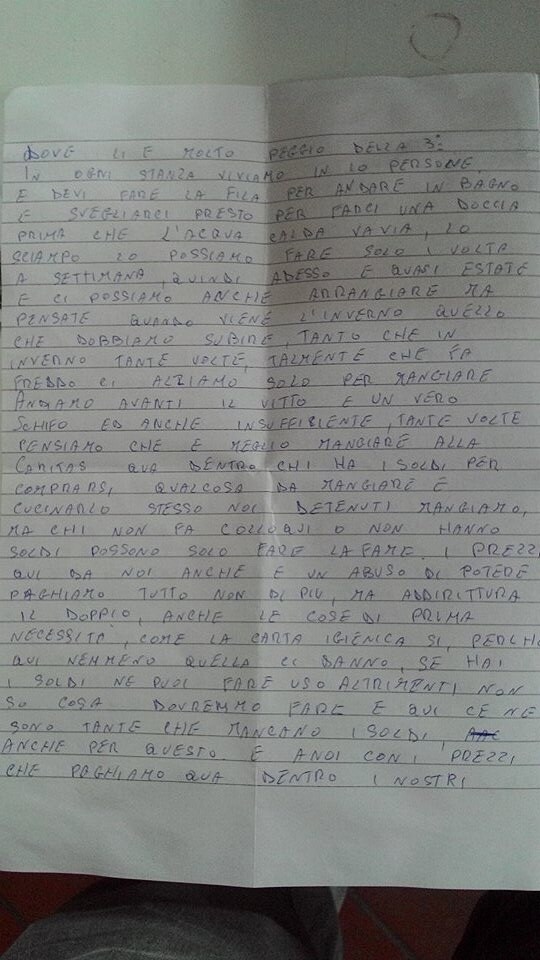 DOVE LI E MOLTO PEGGIO DELLA 3ª
IN OGNI STANZA VIVIAMO IN 10 PERSONE
E DEVI FARE LA FILA PER ANDARE IN BAGNO
E SVEGLIARCI PRESTO PER FARCI UNA DOCCIA
PRIMA CHE L'ACQUA CALDA VA VIA, LO
SCIAMPO LO POSSIAMO FARE SOLO 1 VOLTA
A SETTIMANA, QUINDI ADESSO E QUASI ESTATE
E CI POSSIAMO ANCHE ARRANGIARE MA
PENSATE QUANDO VIENE L'INVERNO QUELLO
CHE DOBBIAMO SUBIRE, TANTO CHE IN
INVERNO TANTE VOLTE, TALMENTE CHE FA
FREDDO CI ALZIAMO SOLO PER MANGIARE
ANDIAMO AVANTI IL VITTO E UN VERO
SCHIFO ED ANCHE INSUFFICIENTE, TANTE VOLTE
PENSIAMO CHE E MEGLIO MANGIARE ALLA
CARITAS QUA DENTRO CHI HA I SOLDI PER
COMPRARSI QUALCOSA DA MANGIARE E
CUCINARLO STESSO NOI DETENUTI MANGIAMO,
MA CHI NON FA COLLOQUI O NON HANNO
SOLDI POSSONO SOLO FARE LA FAME. I PREZZI
QUI DA NOI ANCHE E UN ABUSO DI POTERE
PAGHIAMO TUTTO NON DI PIU, MA ADDIRITTURA
IL DOPPIO, ANCHE LE COSE DI PRIMA
NECESSITO, COME LA CARTA IGIENICA SI, PERCHE
QUI NEMMENO QUELLA CI DANNO, SE HAI
I SOLDI NE PUOI FARE USO ALTRIMENTI NON
SO COSA DOVREMMO FARE E QUI CE NE
SONO TANTE CHE MANCANO I SOLDI,
ANCHE PER QUESTO. E A NOI CON I PREZZI
CHE PAGHIAMO QUA DENTRO I NOSTRI